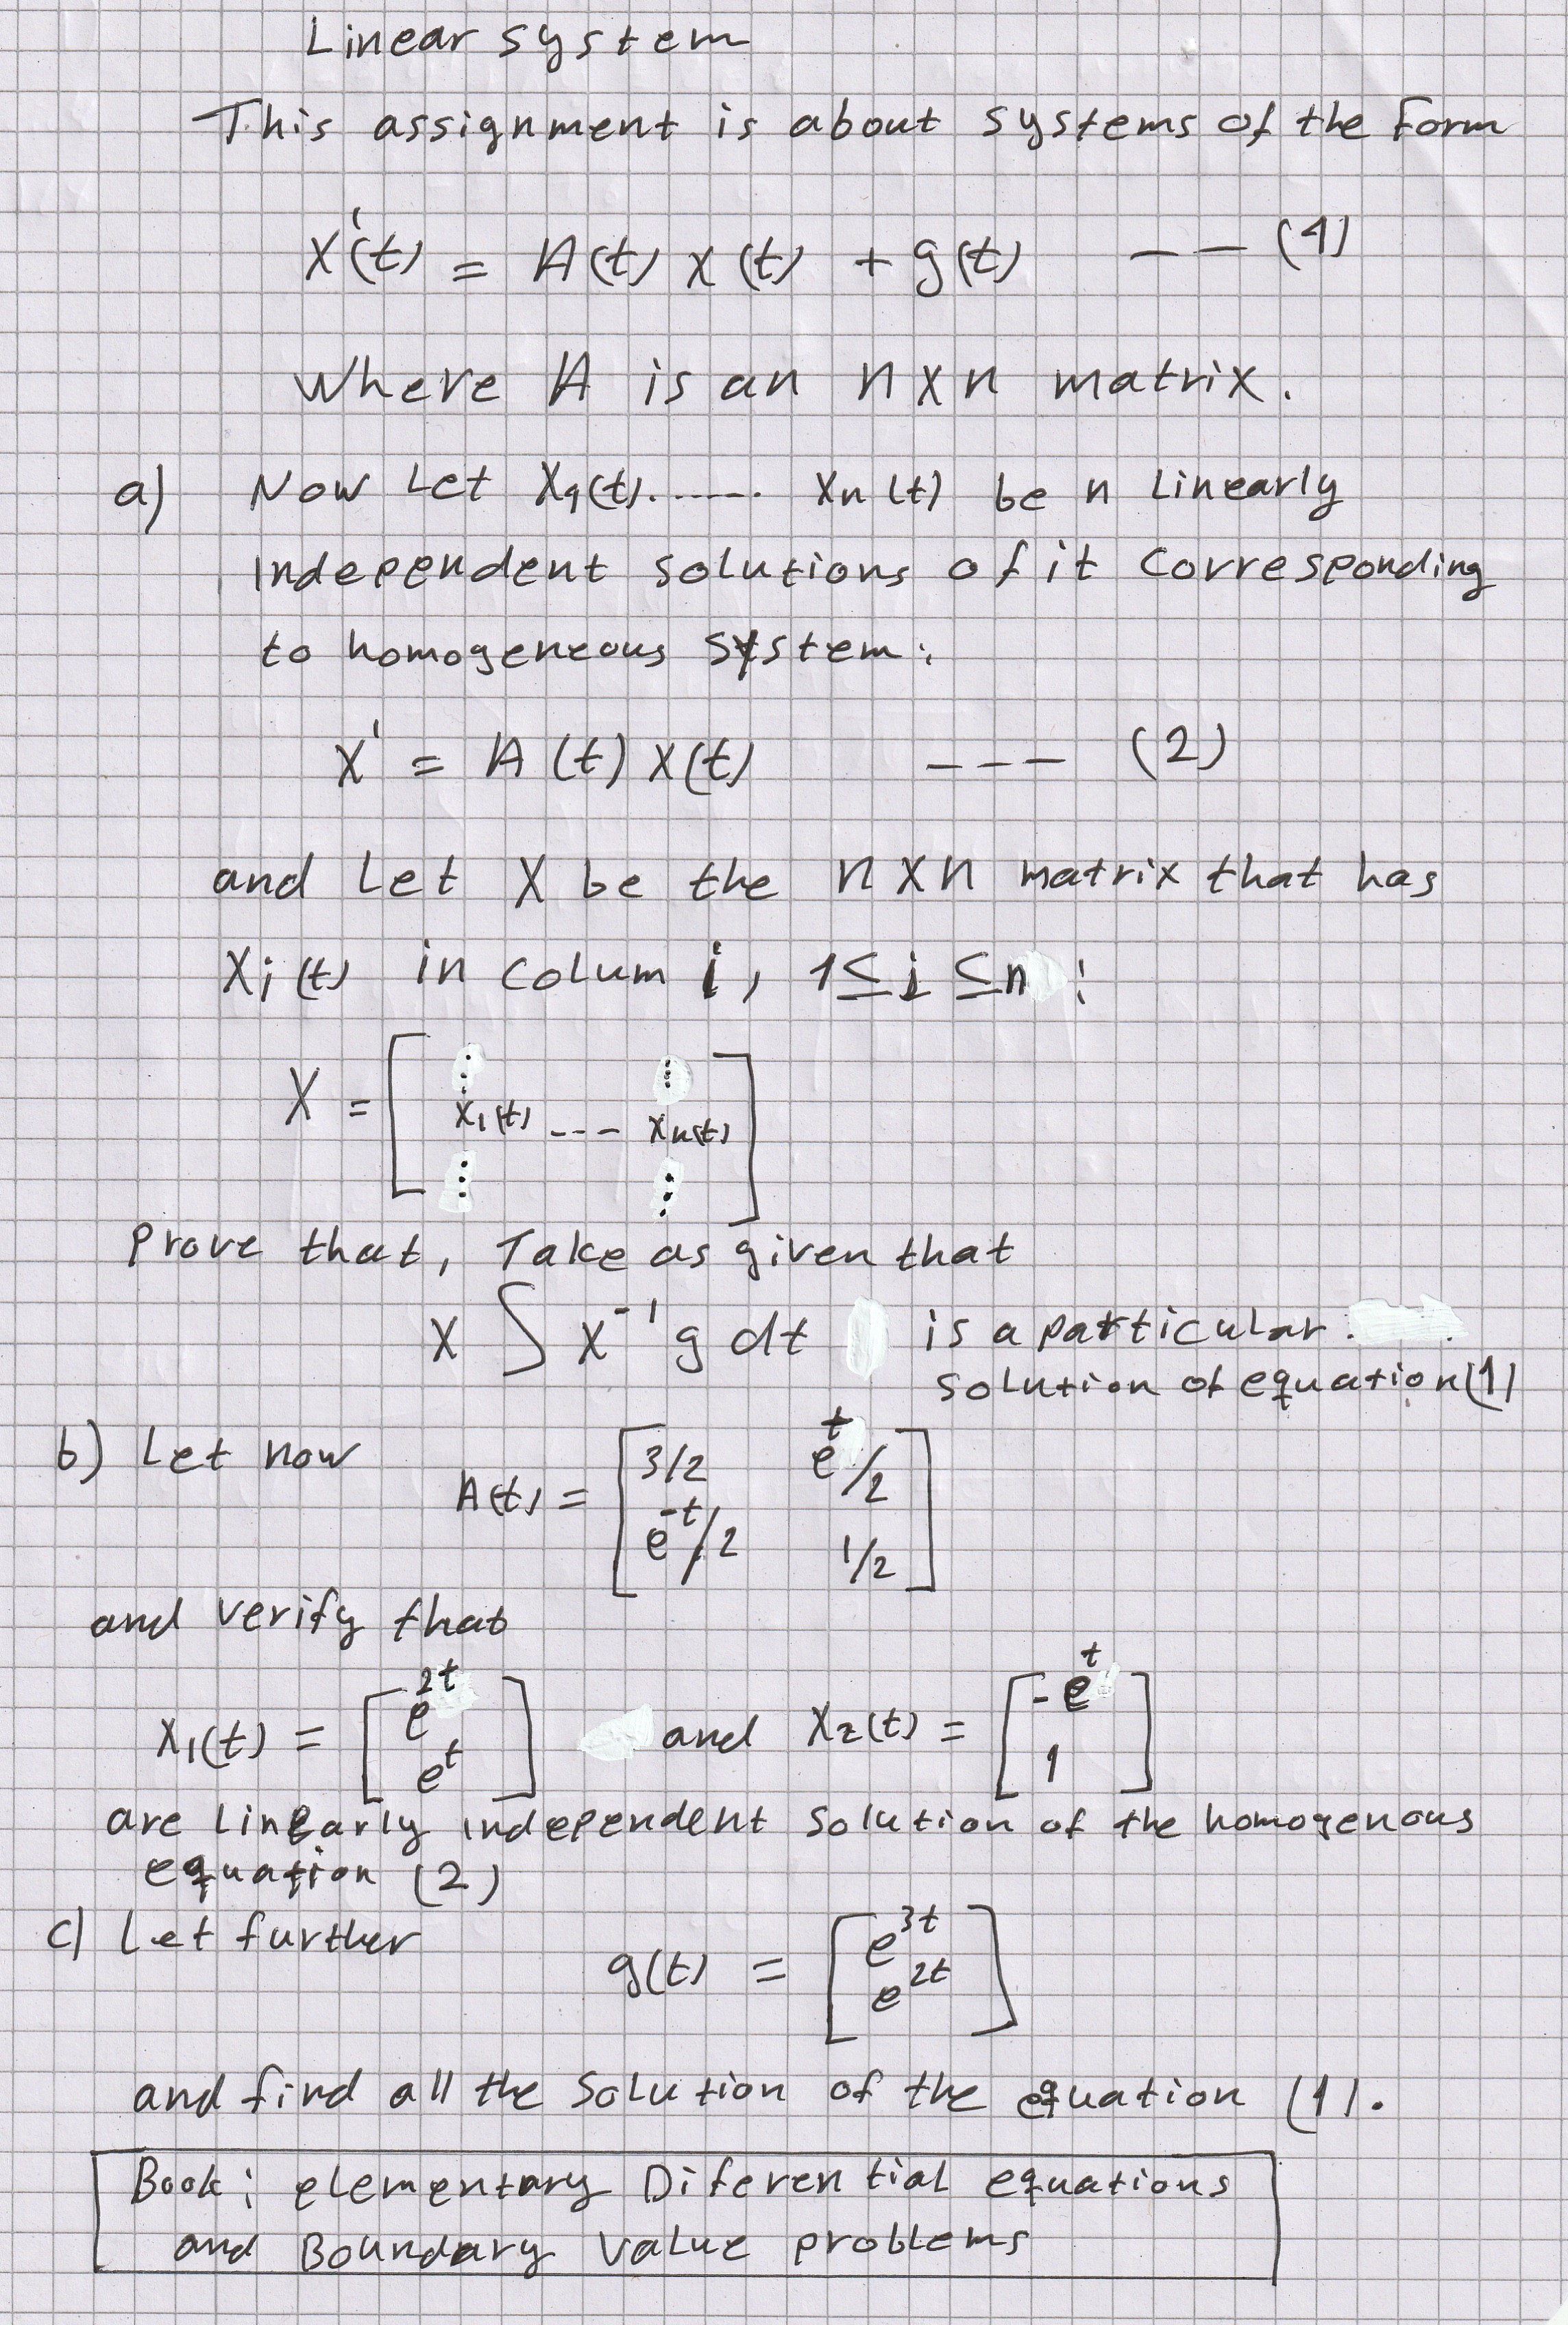 Linear system
This assignment is about systems of the form
x'(t) = A(t) x(t) + g(t) -- (1)
Where A is an n x n matrix.
a) Now Let x1(t)....... xn(t) be n Linearly
Independent solutions of it corresponding
to homogeneous system:
x' = A(t) x(t) --- (2)
and Let X be the n x n matrix that has
xi(t) in colum i, 1 ≤ i ≤ n :
X = [ ⋮ ⋮
x1(t) --- xn(t)
⋮ ⋮ ]
Prove that, Take as given that
X ∫ X^-1 g dt is a particular
solution of equation (1)
b) Let now A(t) = [ 3/2 e^t/2
e^-t/2 1/2 ]
and verify that
x1(t) = [ e^2t
e^t ] and x2(t) = [ -e^t
1 ]
are linearly independent solution of the homogenous
equation (2)
c) Let further g(t) = [ e^3t
e^2t ]
and find all the solution of the equation (1).
Book: elementary Diferential equations
and Boundary value problems